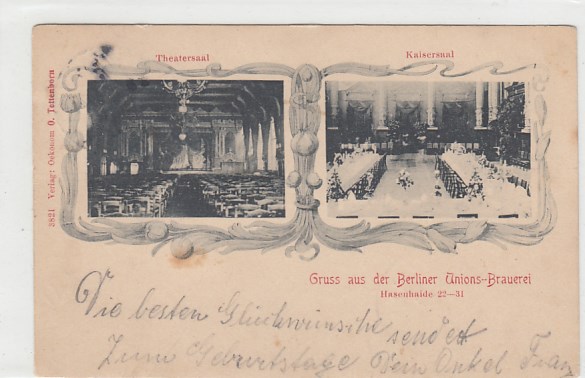 Theatersaal
Kaisersaal
3821 Verlagt Oekonom O. Tettenborn
Gruss aus der Berliner Unions-Brauerei
Hasenhaide 22—31
Die besten Glückwünsche sendet
Zum Geburtstage Dein Onkel Franz